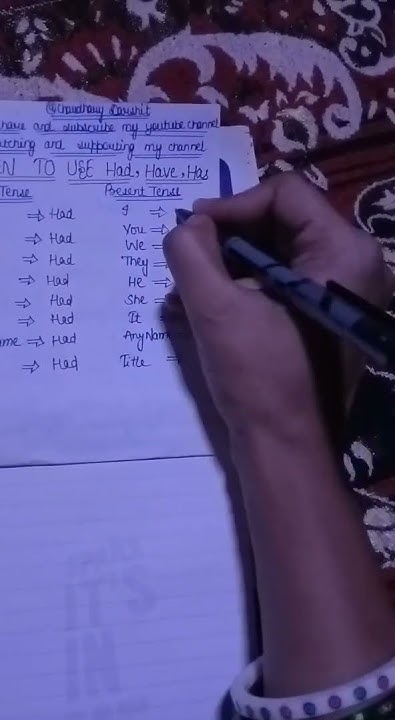 @Chaudhary Darshit
have and subscribe my youtube channel
atching and supporting my channel
N TO USE Had, Have, Has
Tense Present Tense
⇒ Had I ⇒
⇒ Had You ⇒
⇒ Had We ⇒
⇒ Had They ⇒
⇒ Had He ⇒
⇒ Had She ⇒
⇒ Had It
ame ⇒ Had Any Nam
⇒ Had Title ⇒
IT'S
IN